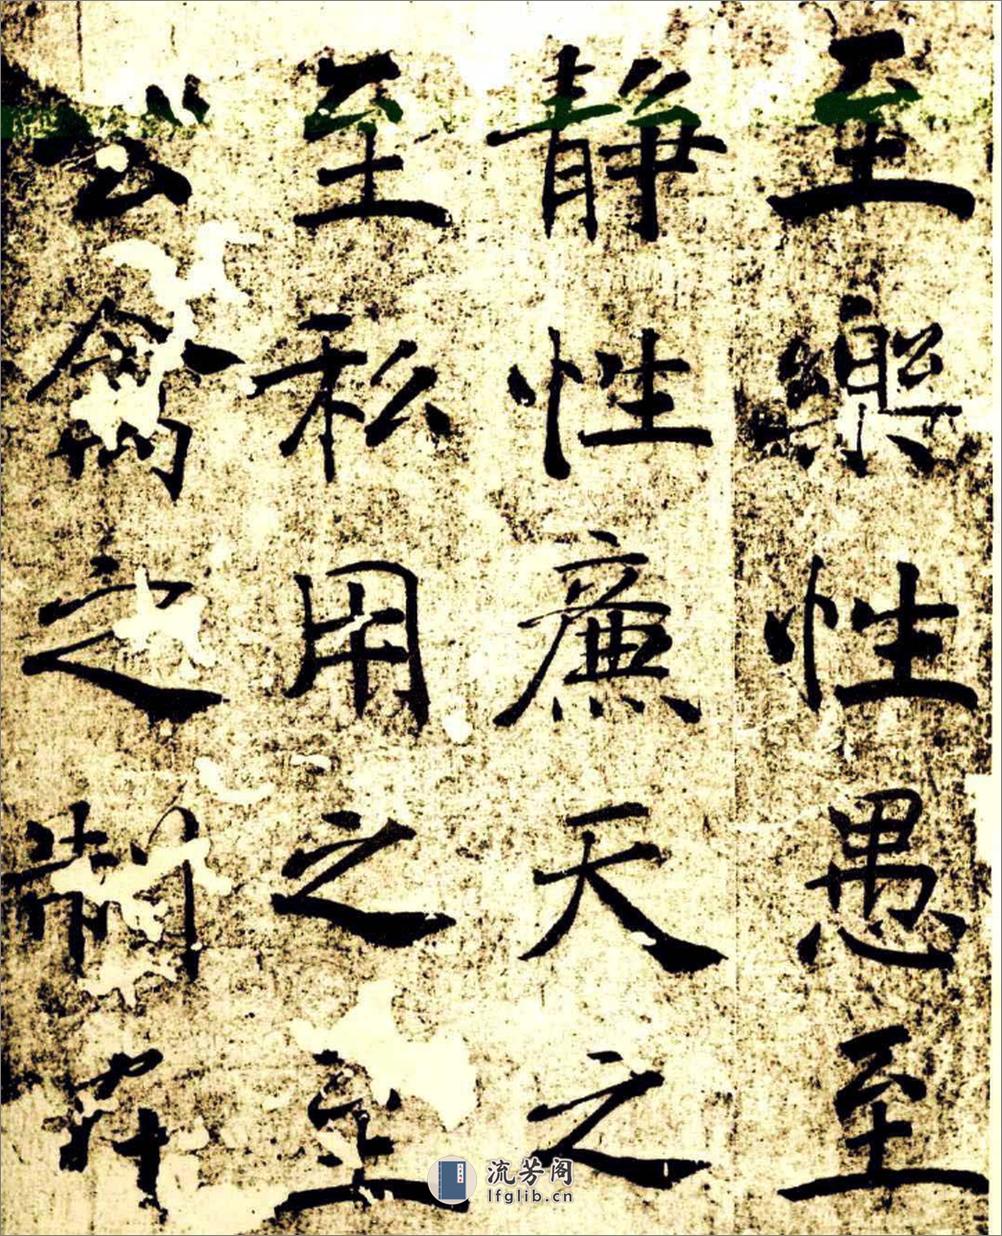 至樂性愚至
靜性廉天之
至私用之至
公禽之制在
流芳阁
lfglib.cn